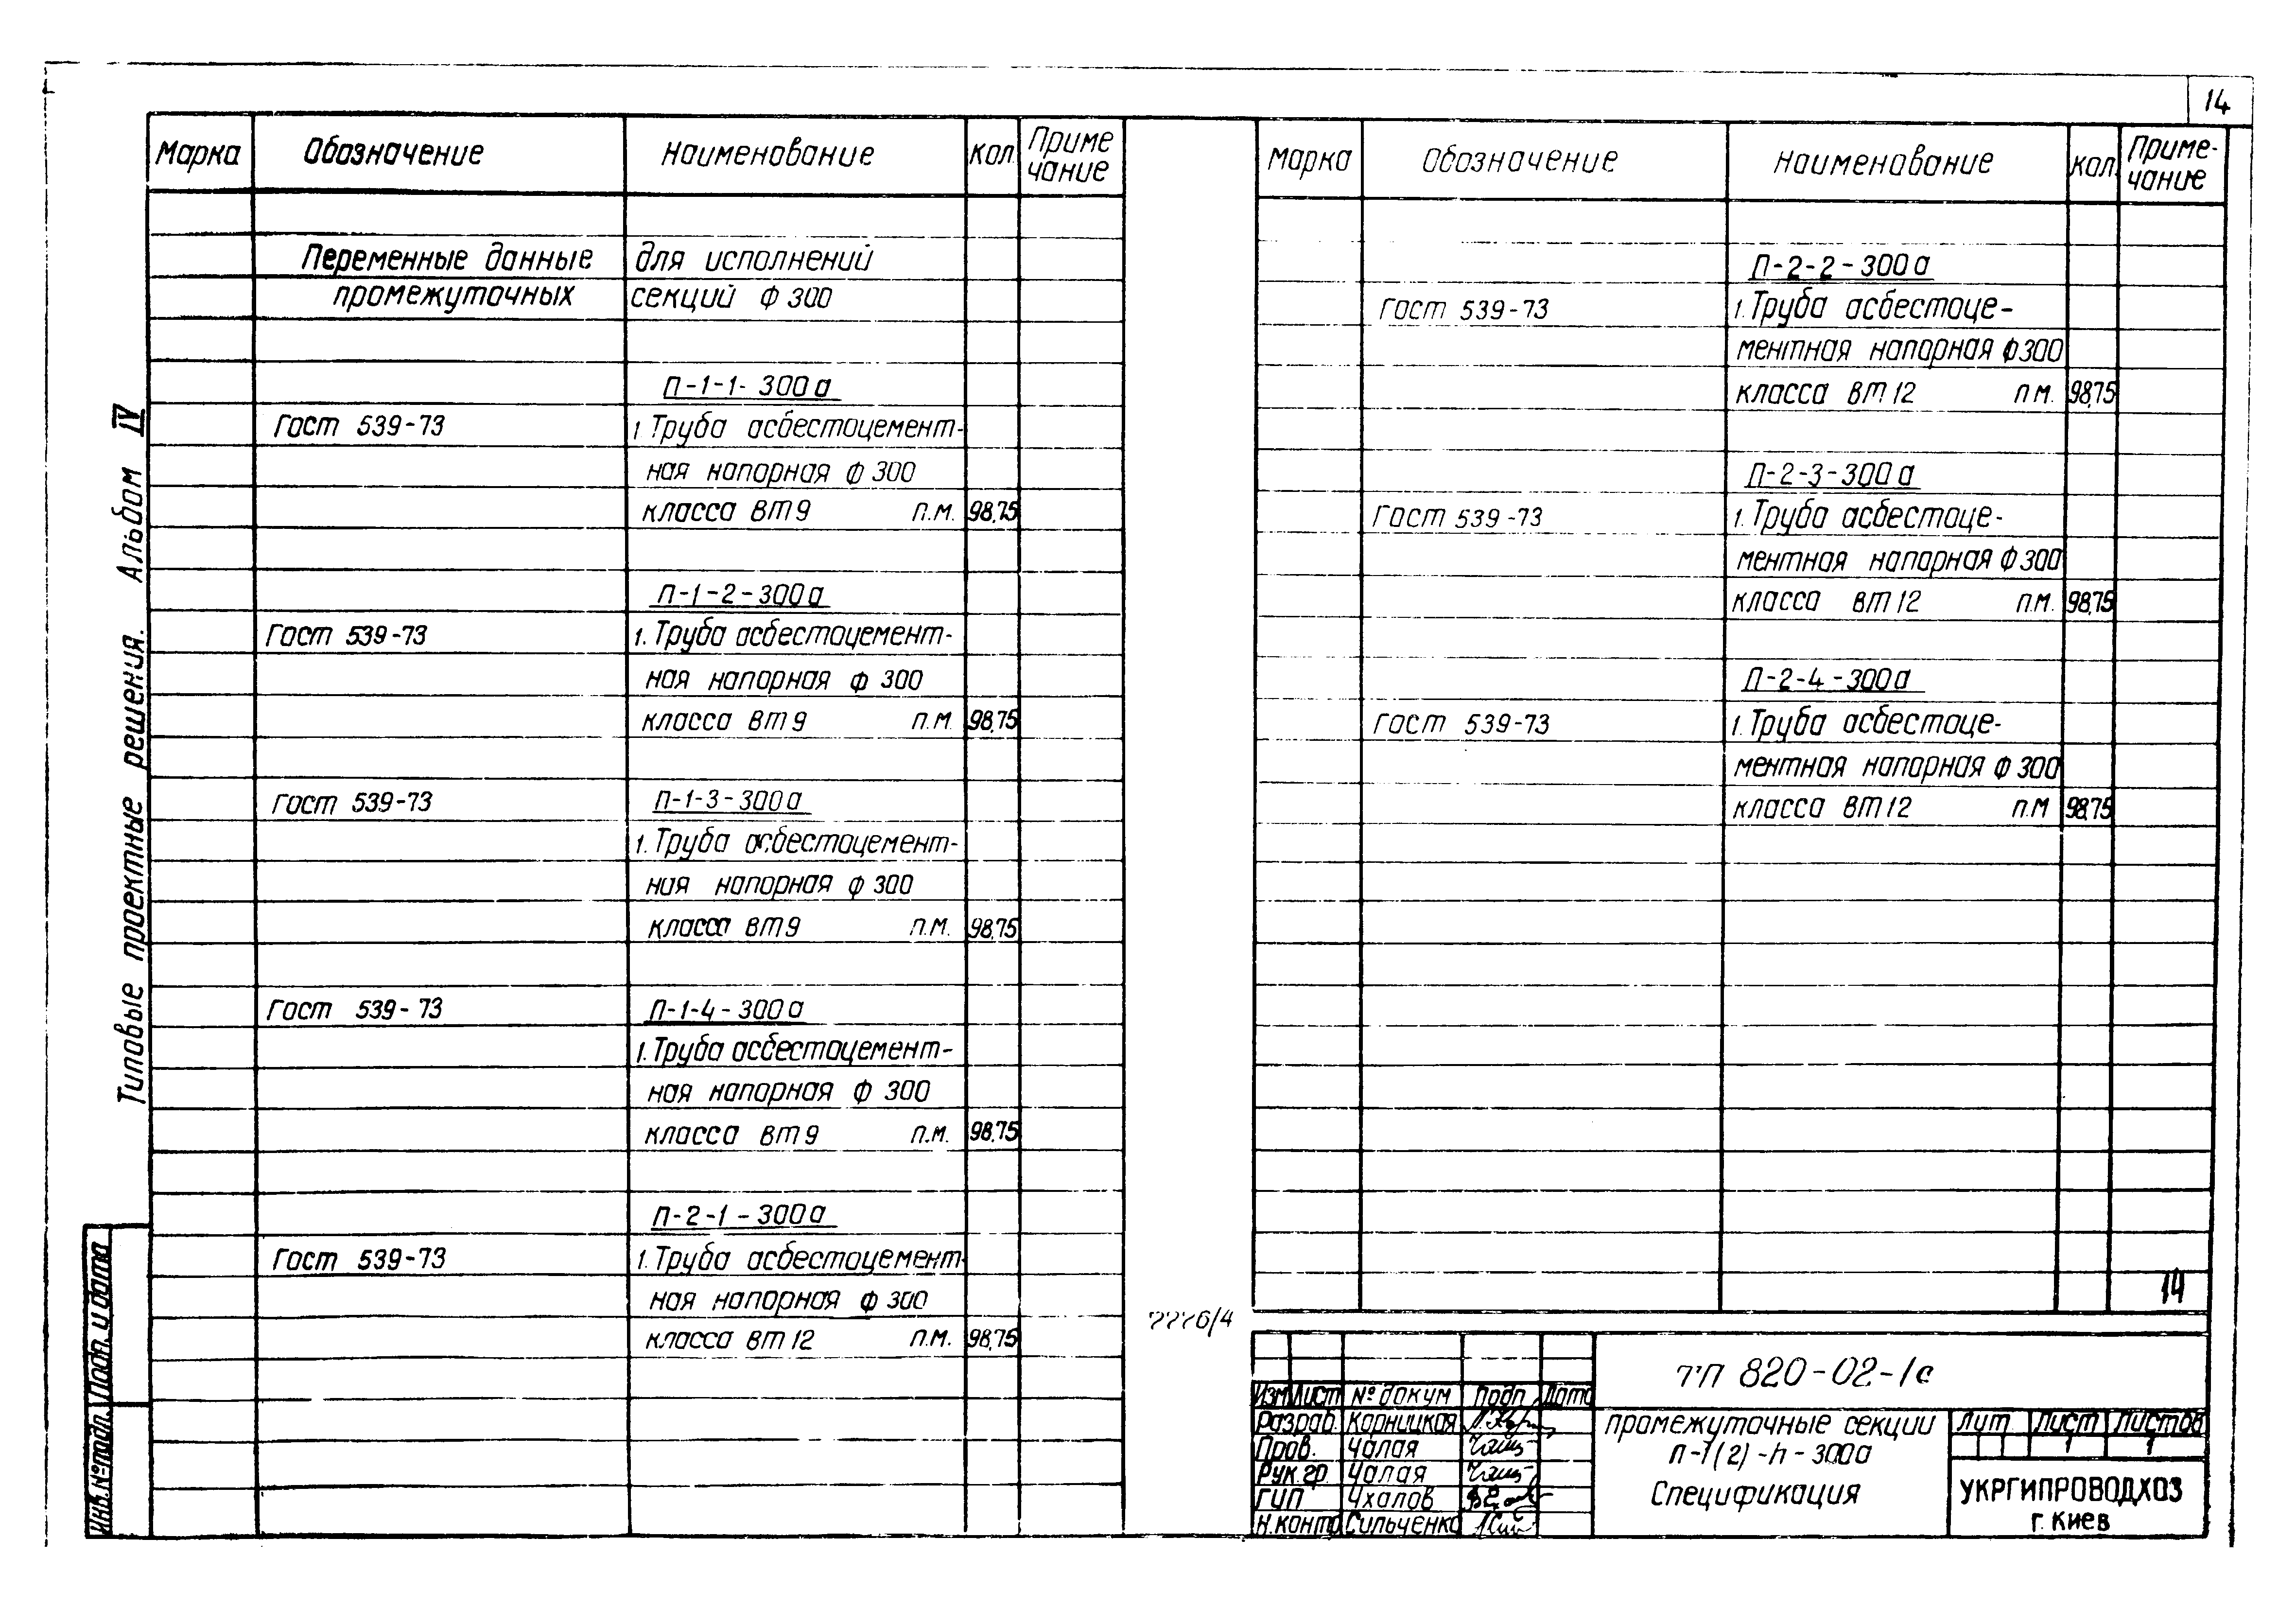 14
Марка Обозначение Наименование Кол. Приме
чание
Переменные данные для исполнений
промежуточных секций Ф 300
П-1-1-300а
Гост 539-73 1 Труба асбестоцемент-
ная напорная Ф 300
класса ВТ9 п.м. 98,75
П-1-2-300а
Гост 539-73 1. Труба асбестоцемент-
ная напорная Ф 300
класса ВТ9 п.м 98,75
Гост 539-73 П-1-3-300а
1. Труба асбестоцемент-
ная напорная Ф 300
класса ВТ9 п.м. 98,75
Гост 539-73 П-1-4-300а
1. Труба асбестоцемент-
ная напорная Ф 300
класса ВТ9 п.м. 98,75
П-2-1-300а
Гост 539-73 1. Труба асбестоцемент
ная напорная Ф 300
класса ВТ12 п.м. 98,75
Марка Обозначение Наименование Кол. Приме-
чание
П-2-2-300а
Гост 539-73 1. Труба асбестоце-
ментная напорная Ф300
класса ВТ12 п.м. 98,75
П-2-3-300а
Гост 539-73 1. Труба асбестоце-
ментная напорная Ф300
класса ВТ12 п.м. 98,75
П-2-4-300а
Гост 539-73 1. Труба асбестоце-
ментная напорная Ф300
класса ВТ12 п.м 98,75
14
Типовые проектные решения. Альбом IV
Инв.№подл. Подп. и дата
ТП 820-02-1с
Изм Лист № докум Подп. Дата
Разраб. Корницкая
Пров. Чалая
Рук.гр. Чалая
ГИП Чхалов
Н.контр Сильченко
промежуточные секции
П-1(2)-h-300а
Спецификация
Лит Лист Листов
1 1
УКРГИПРОВОДХОЗ
г. Киев